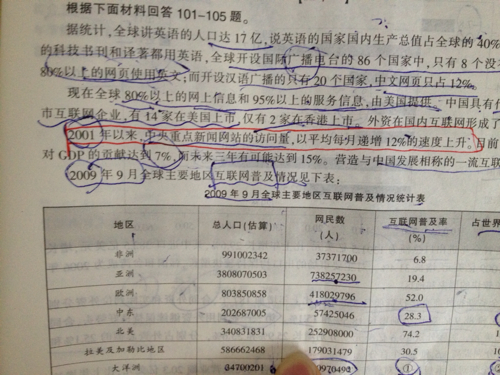 根据下面材料回答 101-105 题。
据统计，全球讲英语的人口达 17 亿，说英语的国家国内生产总值占全球的 40%
的科技书刊和译著都用英语，全球开设国际广播电台的 86 个国家中，只有 8 个没
80%以上的网页使用英文；而开设汉语广播的只有 20 个国家，中文网页只占 12%。
现在全球 80%以上的网上信息和 95%以上的服务信息，由美国提供。中国具有
市互联网企业，有 14 家在美国上市，仅有 2 家在香港上市。外资在国内互联网形成了
2001 年以来，中央重点新闻网站的访问量，以平均每月递增 12%的速度上升。目前
对 GDP 的贡献达到 7%，而未来三年有可能达到 15%。营造与中国发展相称的一流互联
2009 年 9 月全球主要地区互联网普及情况见下表：
2009 年 9 月全球主要地区互联网普及情况统计表
地区 总人口(估算) 网民数(人) 互联网普及率(%) 占世界
非洲 991002342 37371700 6.8
亚洲 3808070503 738257230 19.4
欧洲 803850858 418029796 52.0
中东 202687005 57425046 28.3
北美 340831831 252908000 74.2 1
拉美及加勒比地区 586662468 179031479 30.5 10
大洋洲 34700201